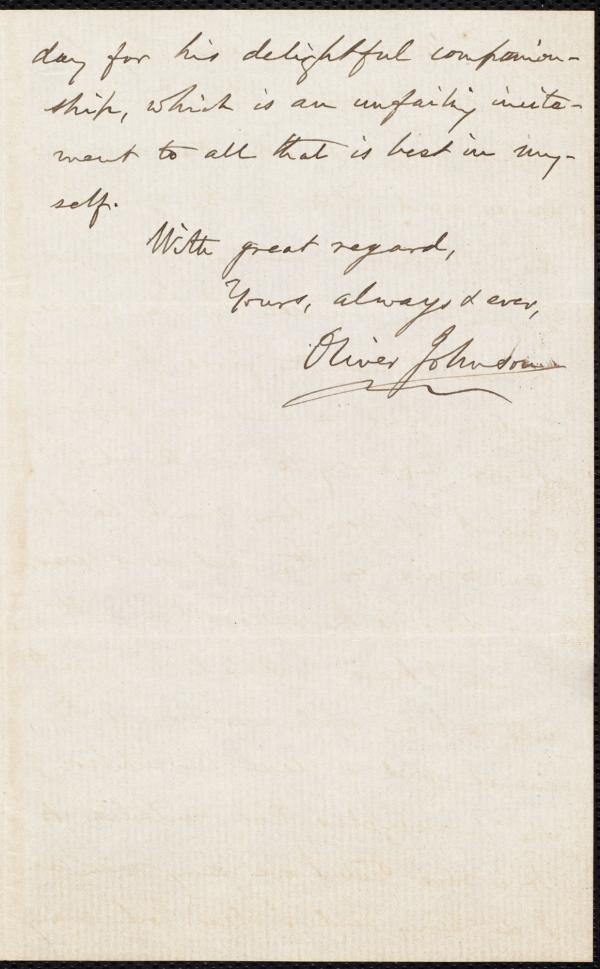 day for his delightful companion-
ship, which is an unfailing incite-
ment to all that is best in my-
self.
With great regard,
Yours, always & ever,
Oliver Johnson